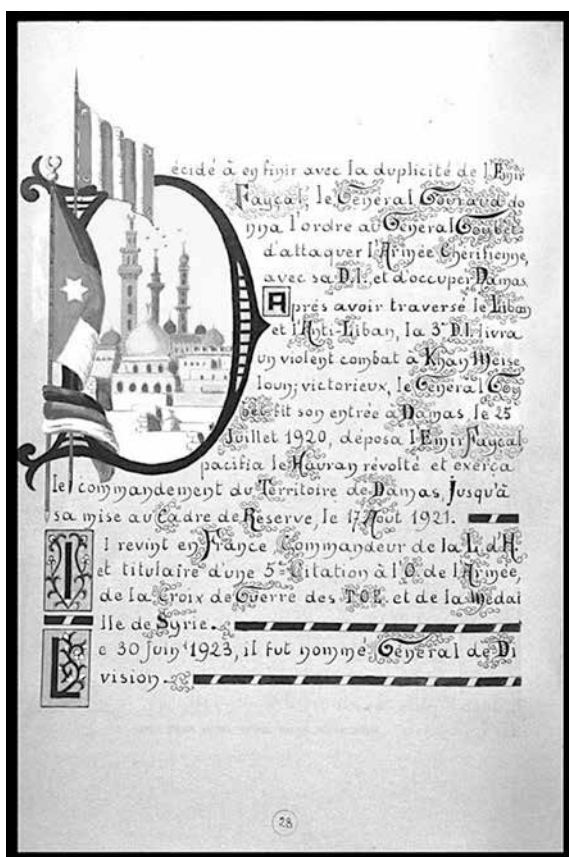 Décidé à en finir avec la duplicité de l'Emir
Fayçal, le Général Gouraud do
nna l'ordre au Général Goybet
d'attaquer l'Armée Chérifienne,
avec sa D.I. et d'occuper Damas.
Après avoir traversé le Liban
et l'Anti-Liban, la 3e D.I. livra
un violent combat à Khan Meise
loun; victorieux, le Général Go
ybet fit son entrée à Damas, le 25
Juillet 1920, déposa l'Emir Fayçal
pacifia le Hauran révolté et exerça
le commandement du Territoire de Damas, jusqu'à
sa mise au Cadre de Réserve, le 17 Août 1921.
Il revint en France, Commandeur de la L. d'H.
et titulaire d'une 5e Citation à l'O. de l'Armée,
de la Croix de Guerre des T.O.E. et de la Médai
lle de Syrie.
Le 30 Juin 1923, il fut nommé Général de Di
vision.
28